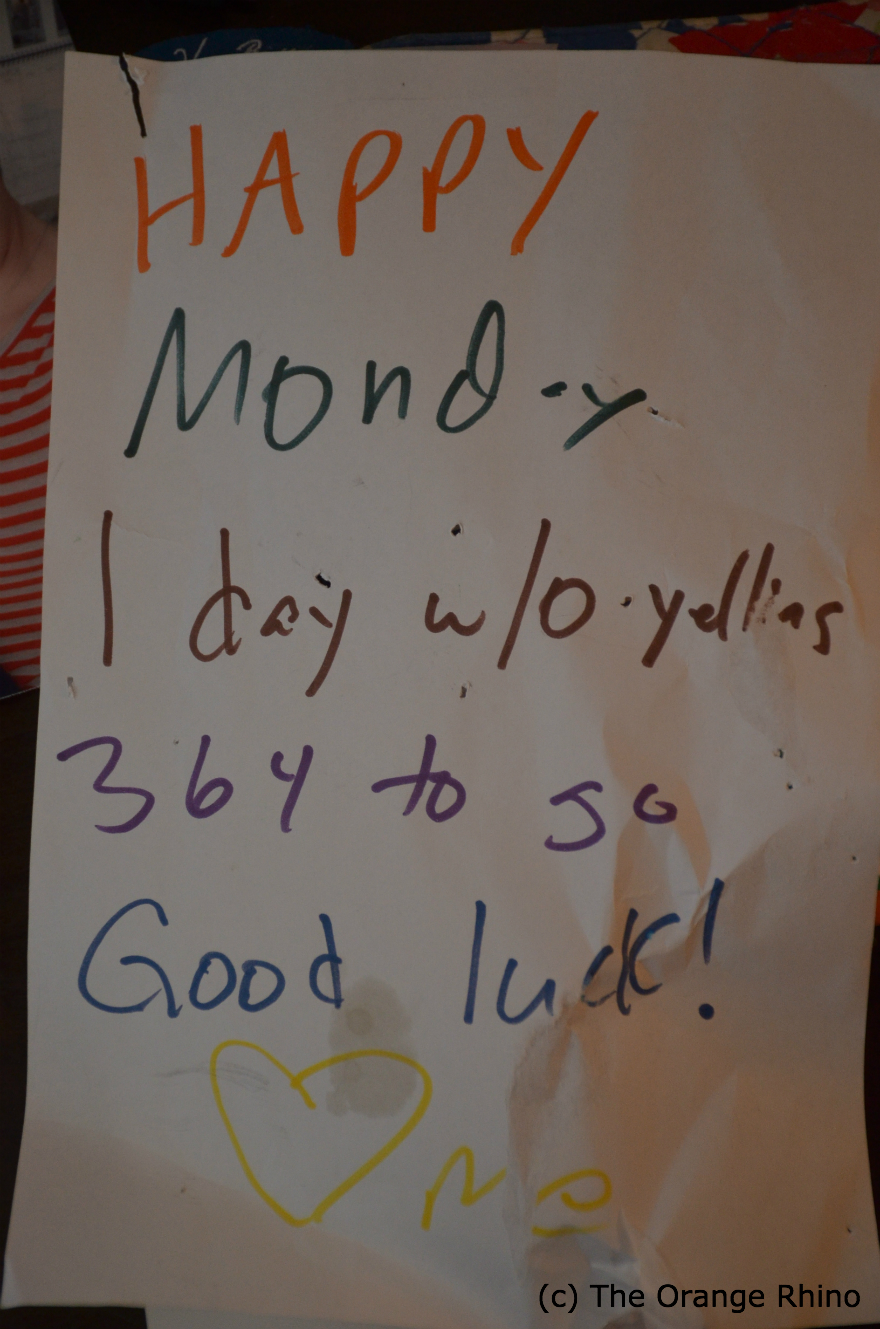 HAPPY
Monday
1 day w/o yelling
364 to go
Good luck!
♡ Me
(c) The Orange Rhino